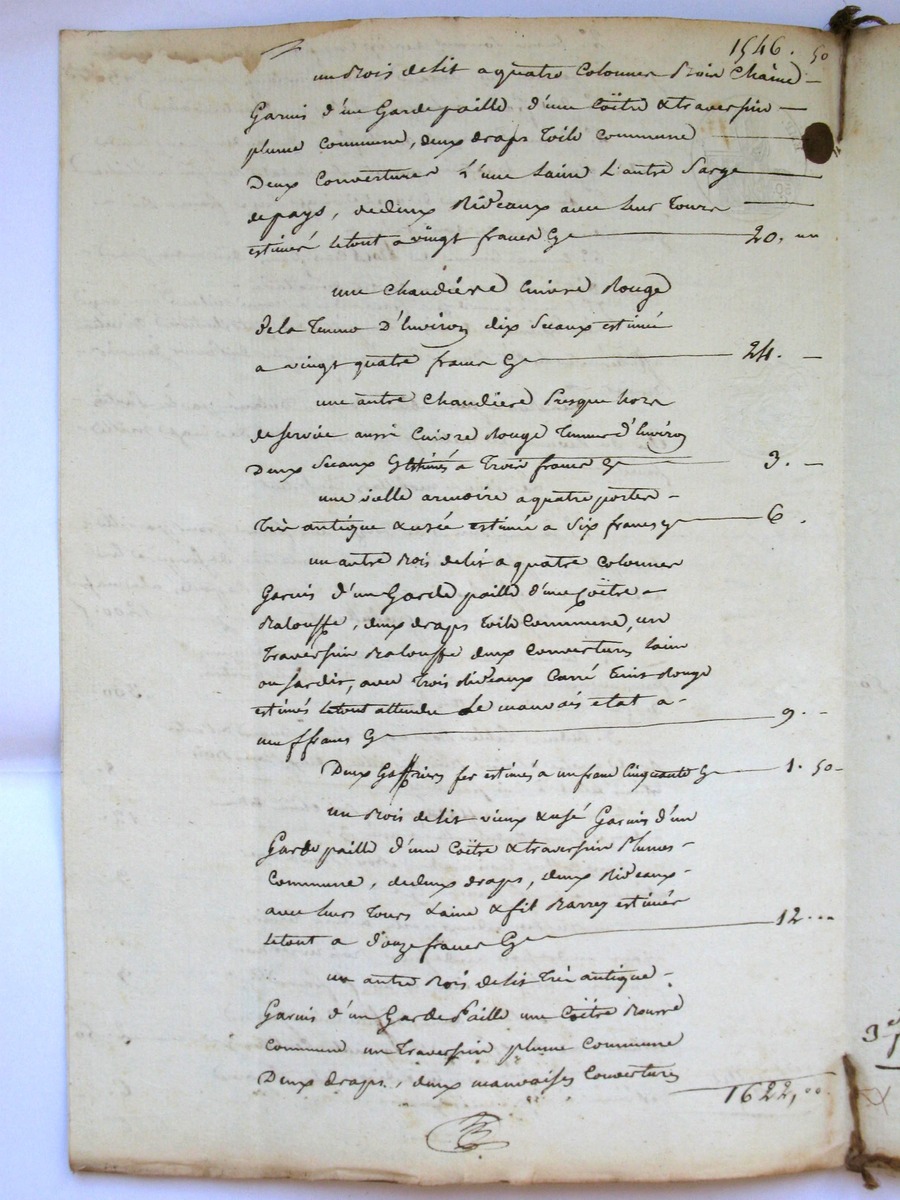 1546. 50
un Bois de lit a quatre Colonnes Bois Chêne —
Garnis d'un Gardepaille, d'une Coëtre & traversin —
plume Commune, deux draps toile Commune —
Deux Couvertures l'une Laine L'autre Sarge —
de pays, de deux Rideaux avec leur tours —
estimés le tout a vingt francs Cy — 20. "
une Chaudière Cuivre Rouge
de la tenue D'Environ dix Seaux estimée
a vingt quatre francs Cy — 24. —
une autre Chaudiere Presque hors
de Service aussi Cuivre Rouge tenue d'Environ
Deux Seaux Estimés a trois francs Cy — 3. —
une vielle armoire a quatre portes —
très antique & usée estimée a Six francs Cy — 6.
un autre Bois de lit a quatre Colonnes
Garnis d'un Garde paille d'une Coëtre a
Balouffe, deux draps toile Commune, un
traversin Balouffe deux Couvertures laine
avec trois Rideaux Carré teint Rouge
estimés le tout attendu Le mauvais etat a —
neuf francs Cy — 9. -
Deux Gaffriers fer estimés a un franc Cinquante Cy — 1. 50 -
un Bois de lit vieux & usé Garnis d'un
Garde paille d'une Coëtre & traversin Plumes -
Commune, de deux draps, deux Rideaux -
avec leurs tours Laine & fil Barrés estimés
le tout a douze francs Cy — 12. ..
un autre Bois de lit très antique -
Garnis d'un Garde Paille une Coëtre Bourre
Commune un traversin plume Commune
Deux draps, deux mauvaises Couvertures
1622,00